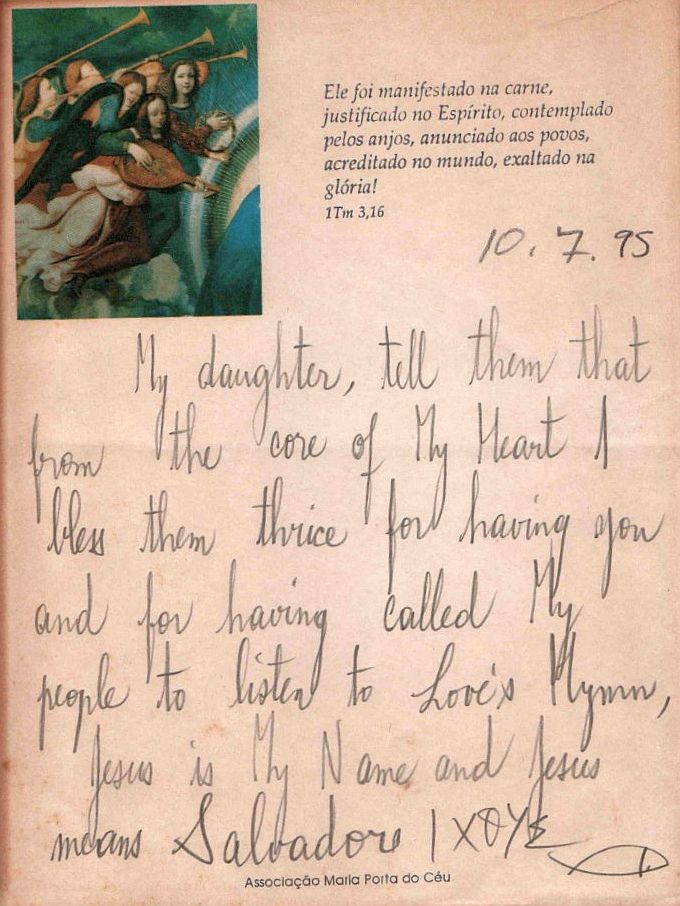 Ele foi manifestado na carne,
justificado no Espírito, contemplado
pelos anjos, anunciado aos povos,
acreditado no mundo, exaltado na
glória!
1Tm 3,16
10.7.95
My daughter, tell them that
from the core of My Heart I
bless them thrice for having you
and for having called My
people to listen to Love's Hymn,
Jesus is My Name and Jesus
means Salvadore ΙΧΘΥΣ
Associação Maria Porta do Céu